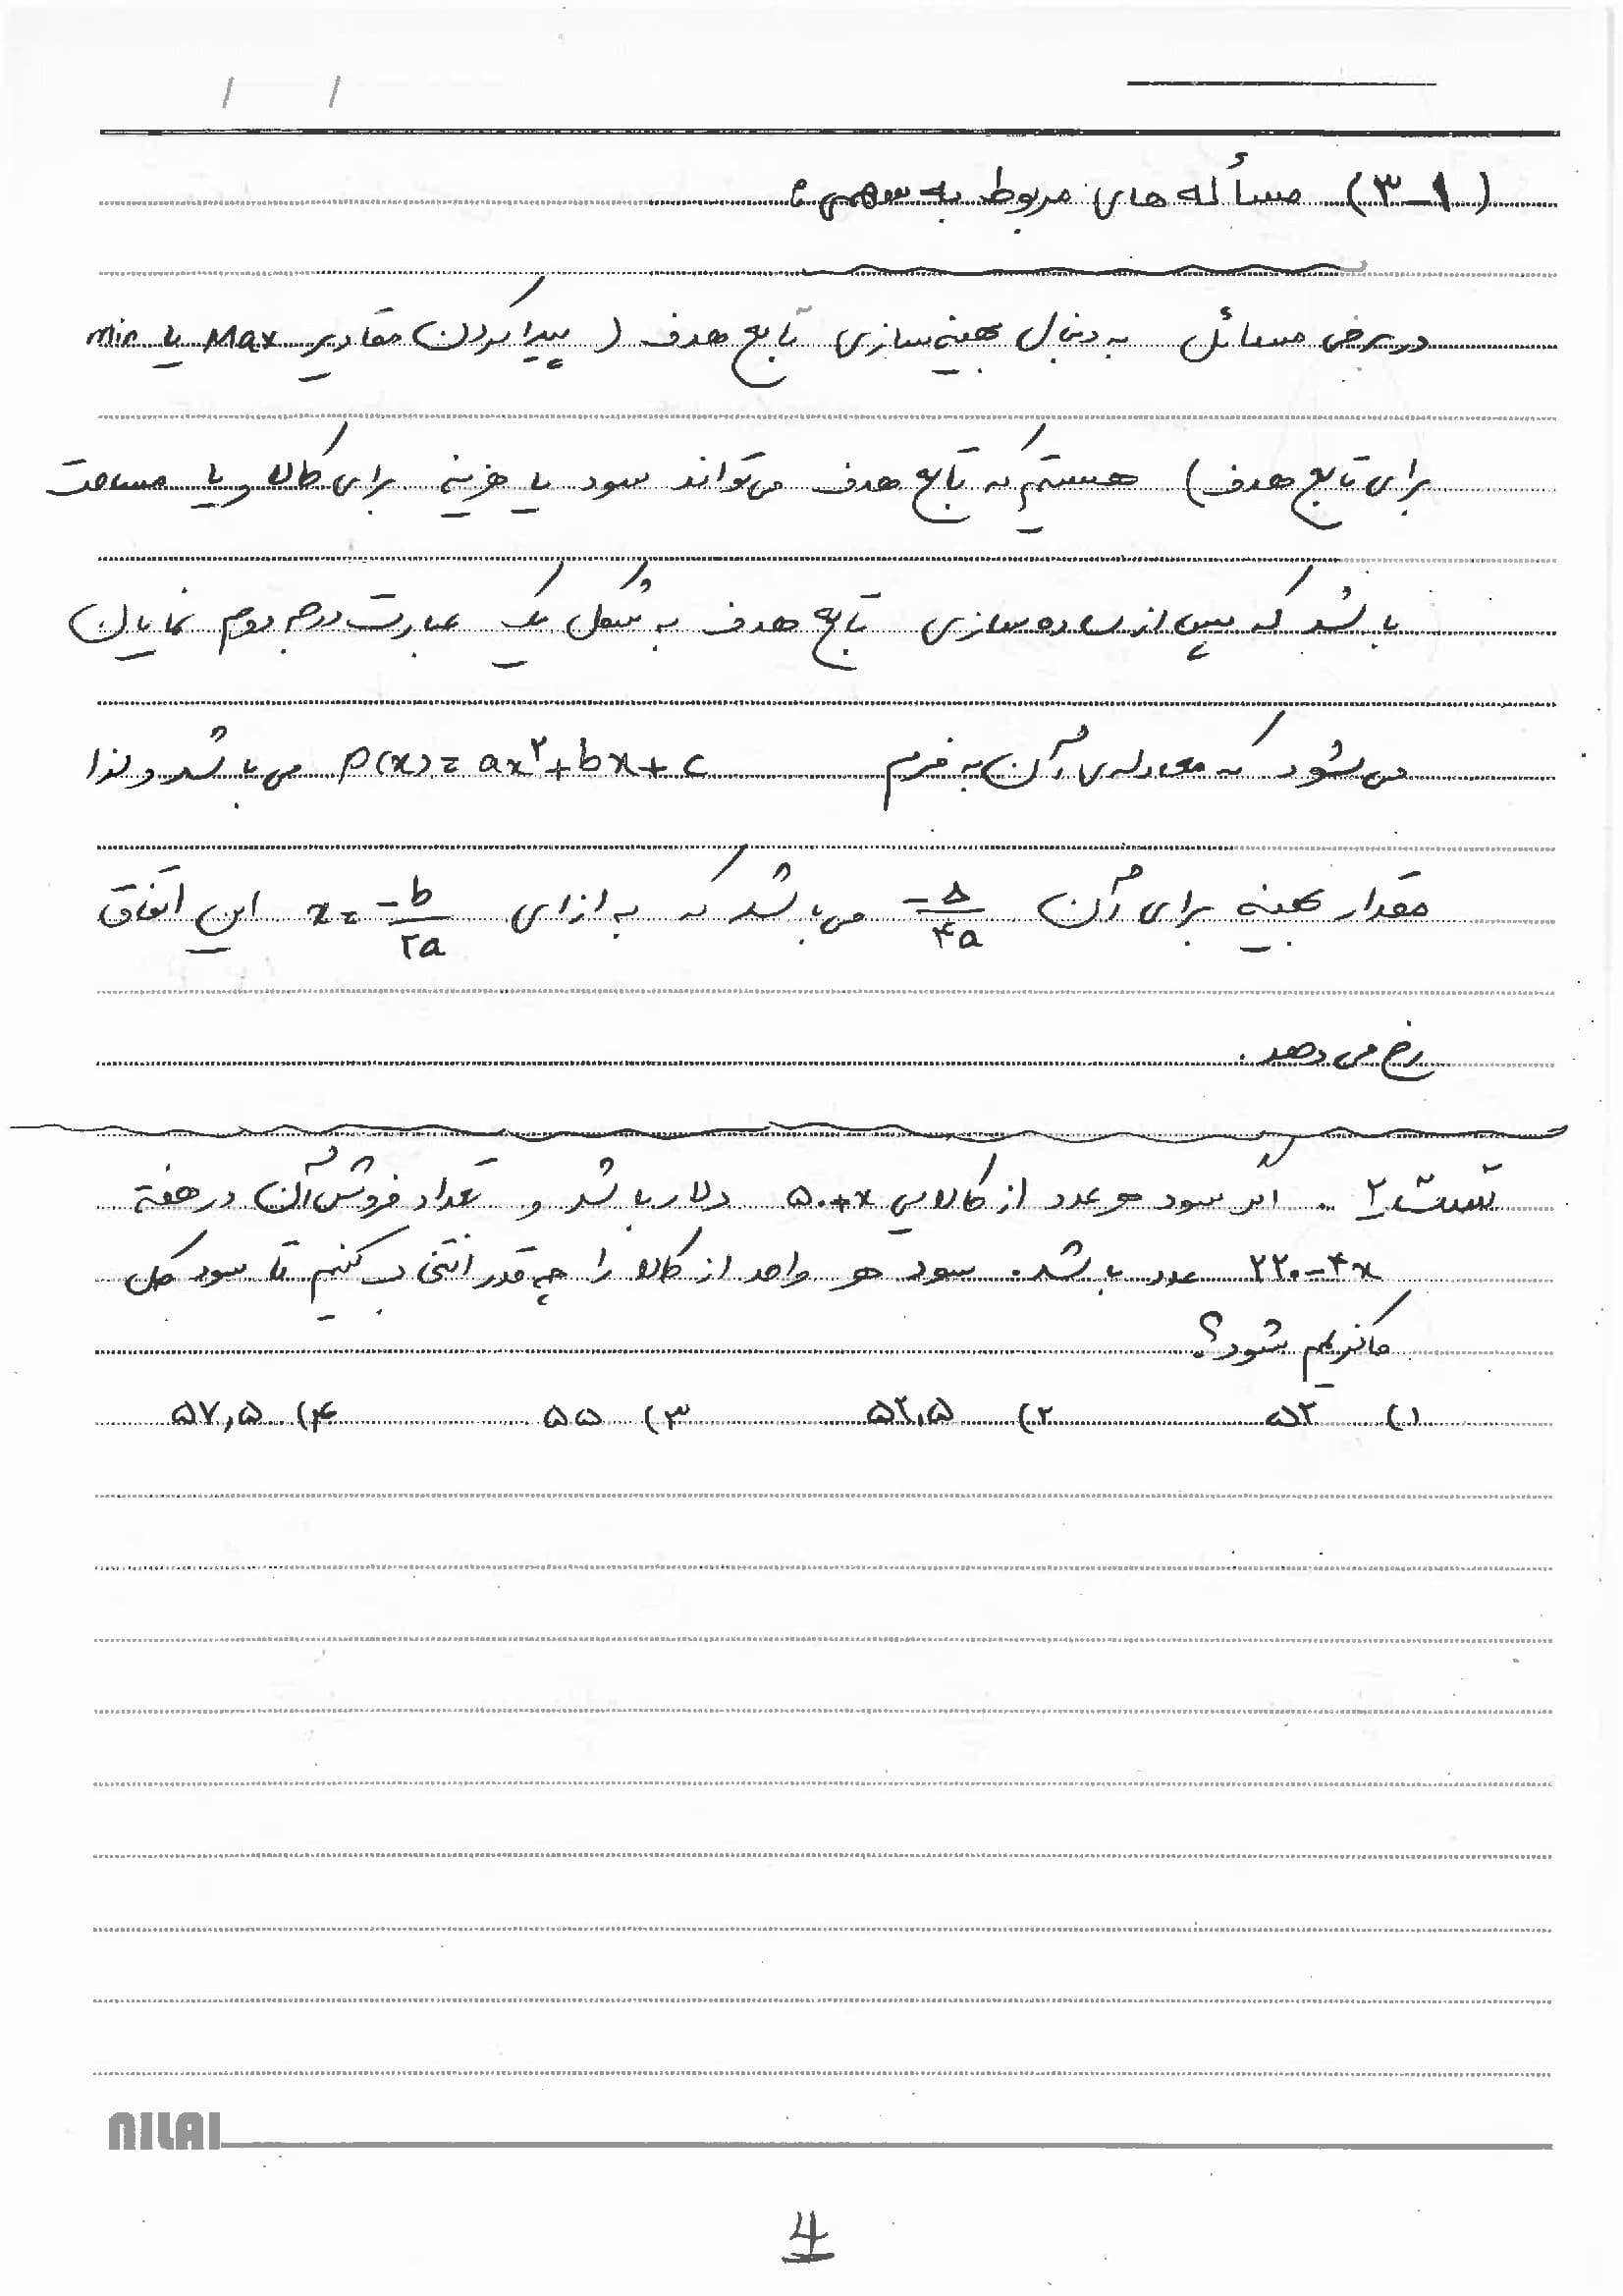 (۳-۱) مسأله های مربوط به سهمی :
در برخی مسائل به دنبال بهینه سازی تابع هدف ( پیدا کردن مقادیر Max یا min
برای تابع هدف) هستیم که تابع هدف می تواند سود یا هزینه برای کالا و یا مساحت
باشد که پس از ساده سازی تابع هدف به شکل یک عبارت درجه دوم نمایان
می شود که معادله ی آن به فرم P(x) = ax۲+bx+c می باشد و لذا
مقدار بهینه برای آن -Δ/۴a می باشد که به ازای x = -b/۲a این اتفاق
رخ می دهد .
تست ۲ . اگر سود هر عدد از کالایی ۵۰+x دلار باشد و تعداد فروش آن در هفته
۲۲۰-۴x عدد باشد . سود هر واحد از کالا را چه قدر انتخاب کنیم تا سود کل
ماکزیمم شود؟
۱) ۵۲ ۲) ۵۲,۵ ۳) ۵۵ ۴) ۵۷,۵
NILAI
4